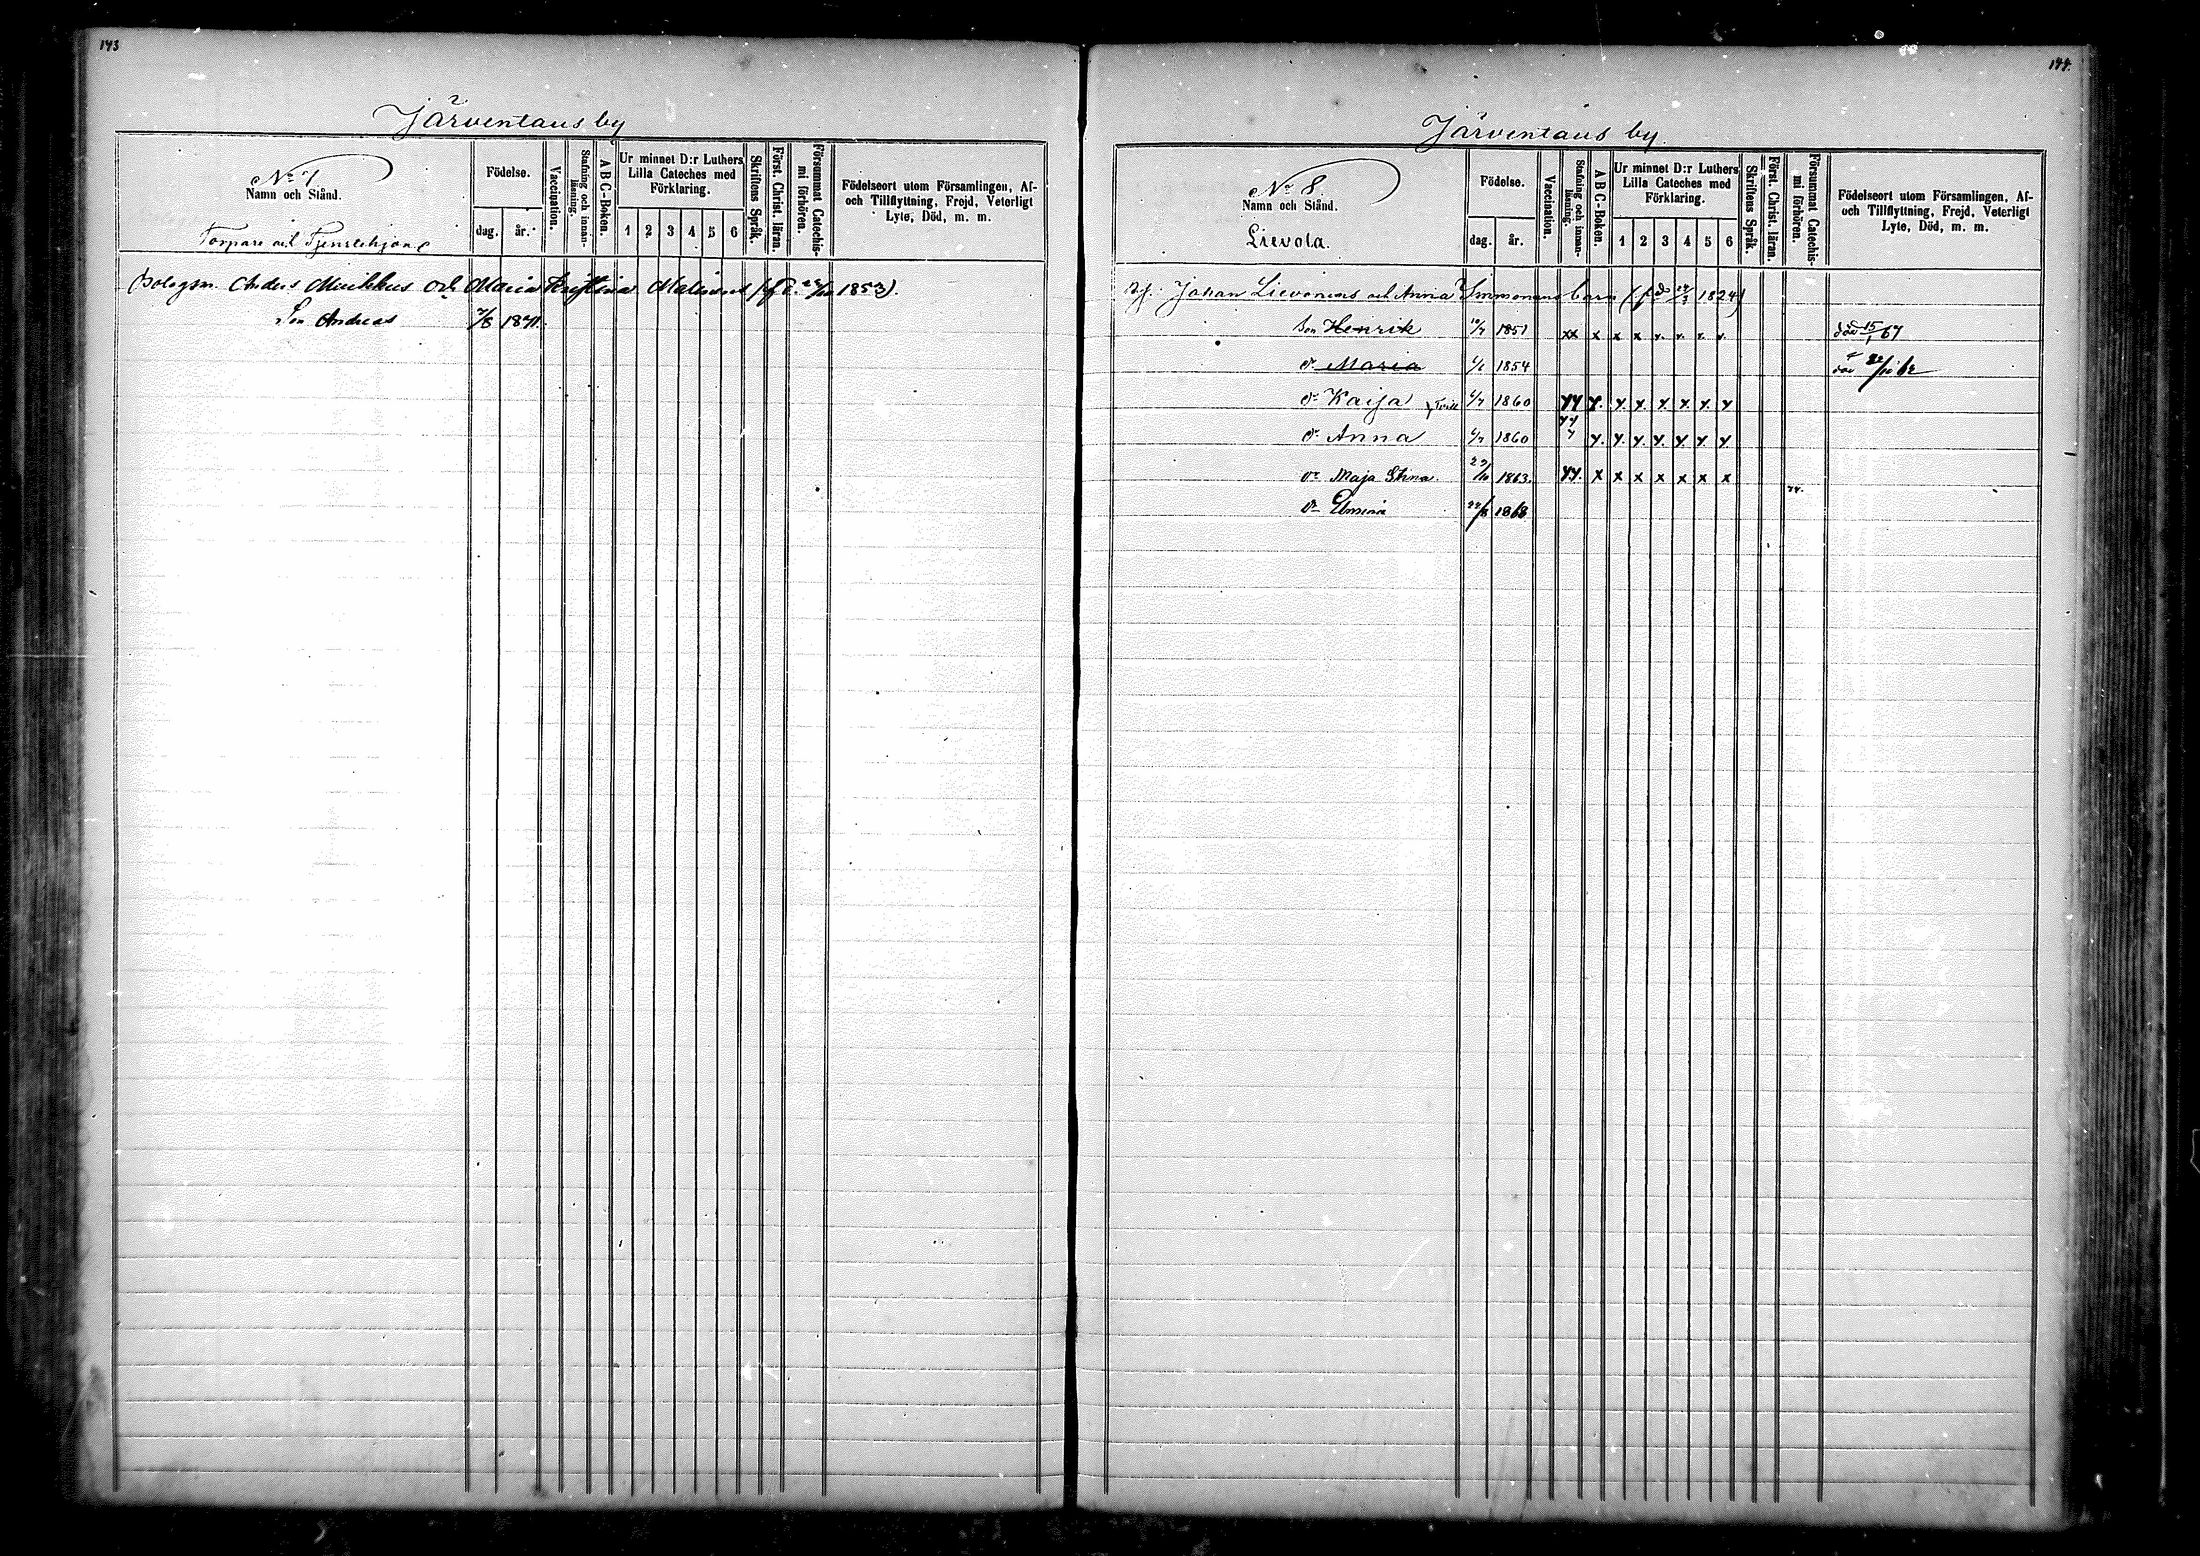 143
Järventaus by
No 7
Namn och Stånd.
Torpare och Tjenstehjon
Födelse.
dag. år.
Vaccination.
Stafning och innan-läsning.
A B C-Boken.
Ur minnet D:r Luthers
Lilla Cateches med
Förklaring.
1 2 3 4 5 6
Skriftens Språk.
Först. Christ. läran.
Försummat Catechis-mi förhören.
Födelseort utom Församlingen, Af-
och Tillflyttning, Frejd, Veterligt
Lyte, Död, m. m.
Bolagsm. Anders Muikkus och Maria Kristina 1853).
Son Andreas 7/8 1871.
144.
Järventaus by.
No 8.
Namn och Stånd.
Lievola.
Födelse.
dag. år.
Vaccination.
Stafning och innan-läsning.
A B C-Boken.
Ur minnet D:r Luthers
Lilla Cateches med
Förklaring.
1 2 3 4 5 6
Skriftens Språk.
Först. Christ. läran.
Försummat Catechis-mi förhören.
Födelseort utom Församlingen, Af-
och Tillflyttning, Frejd, Veterligt
Lyte, Död, m. m.
Johan Lievonens och Anna Immonens barn 1824)
Son Henrik 1851 xx x x x x x x x
dr Maria 1854
dr Kaija 1860 xx x. x. x. x. x. x. x
dr Anna 1860 x. x. x. x. x x x
dr Maja Stina. 1863. xx. x x x x x x x
dr 1868